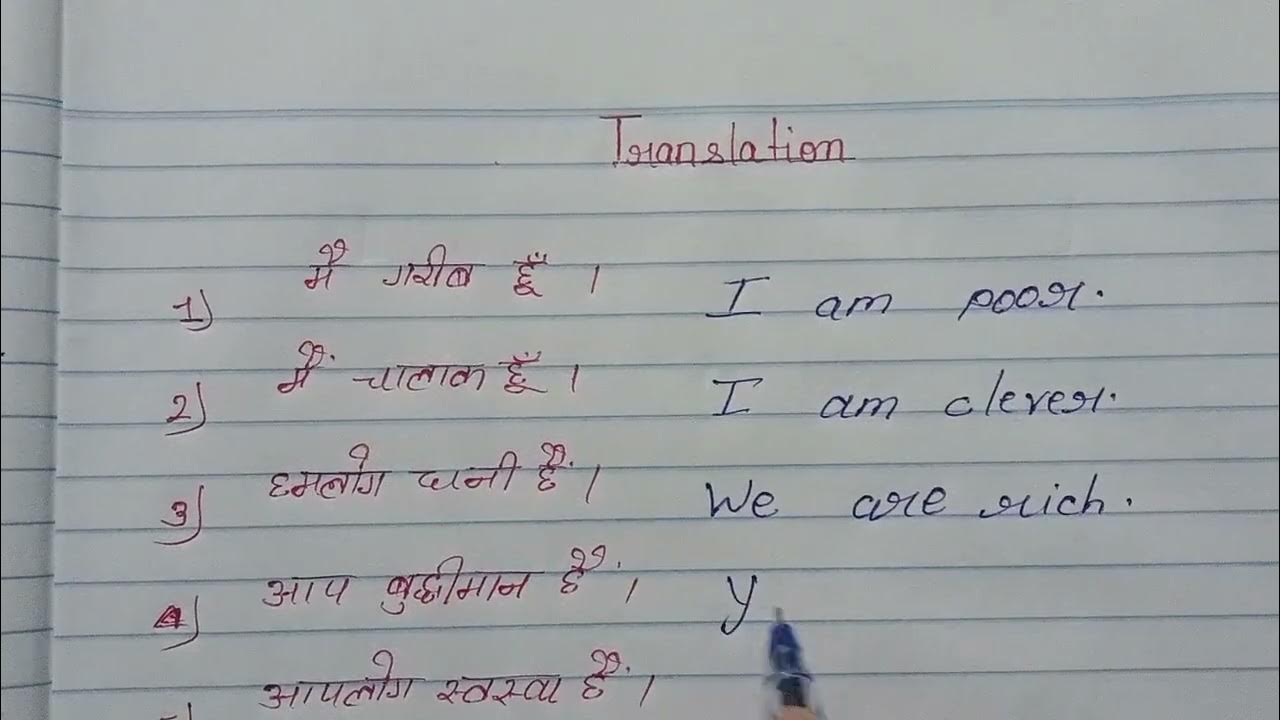 Translation
1) मैं गरीब हूँ । I am poor.
2) मैं चालाक हूँ । I am clever.
3) हमलोग धनी हैं । We are rich.
4) आप बुद्धीमान हैं । Y
आपलोग स्वस्थ हैं ।